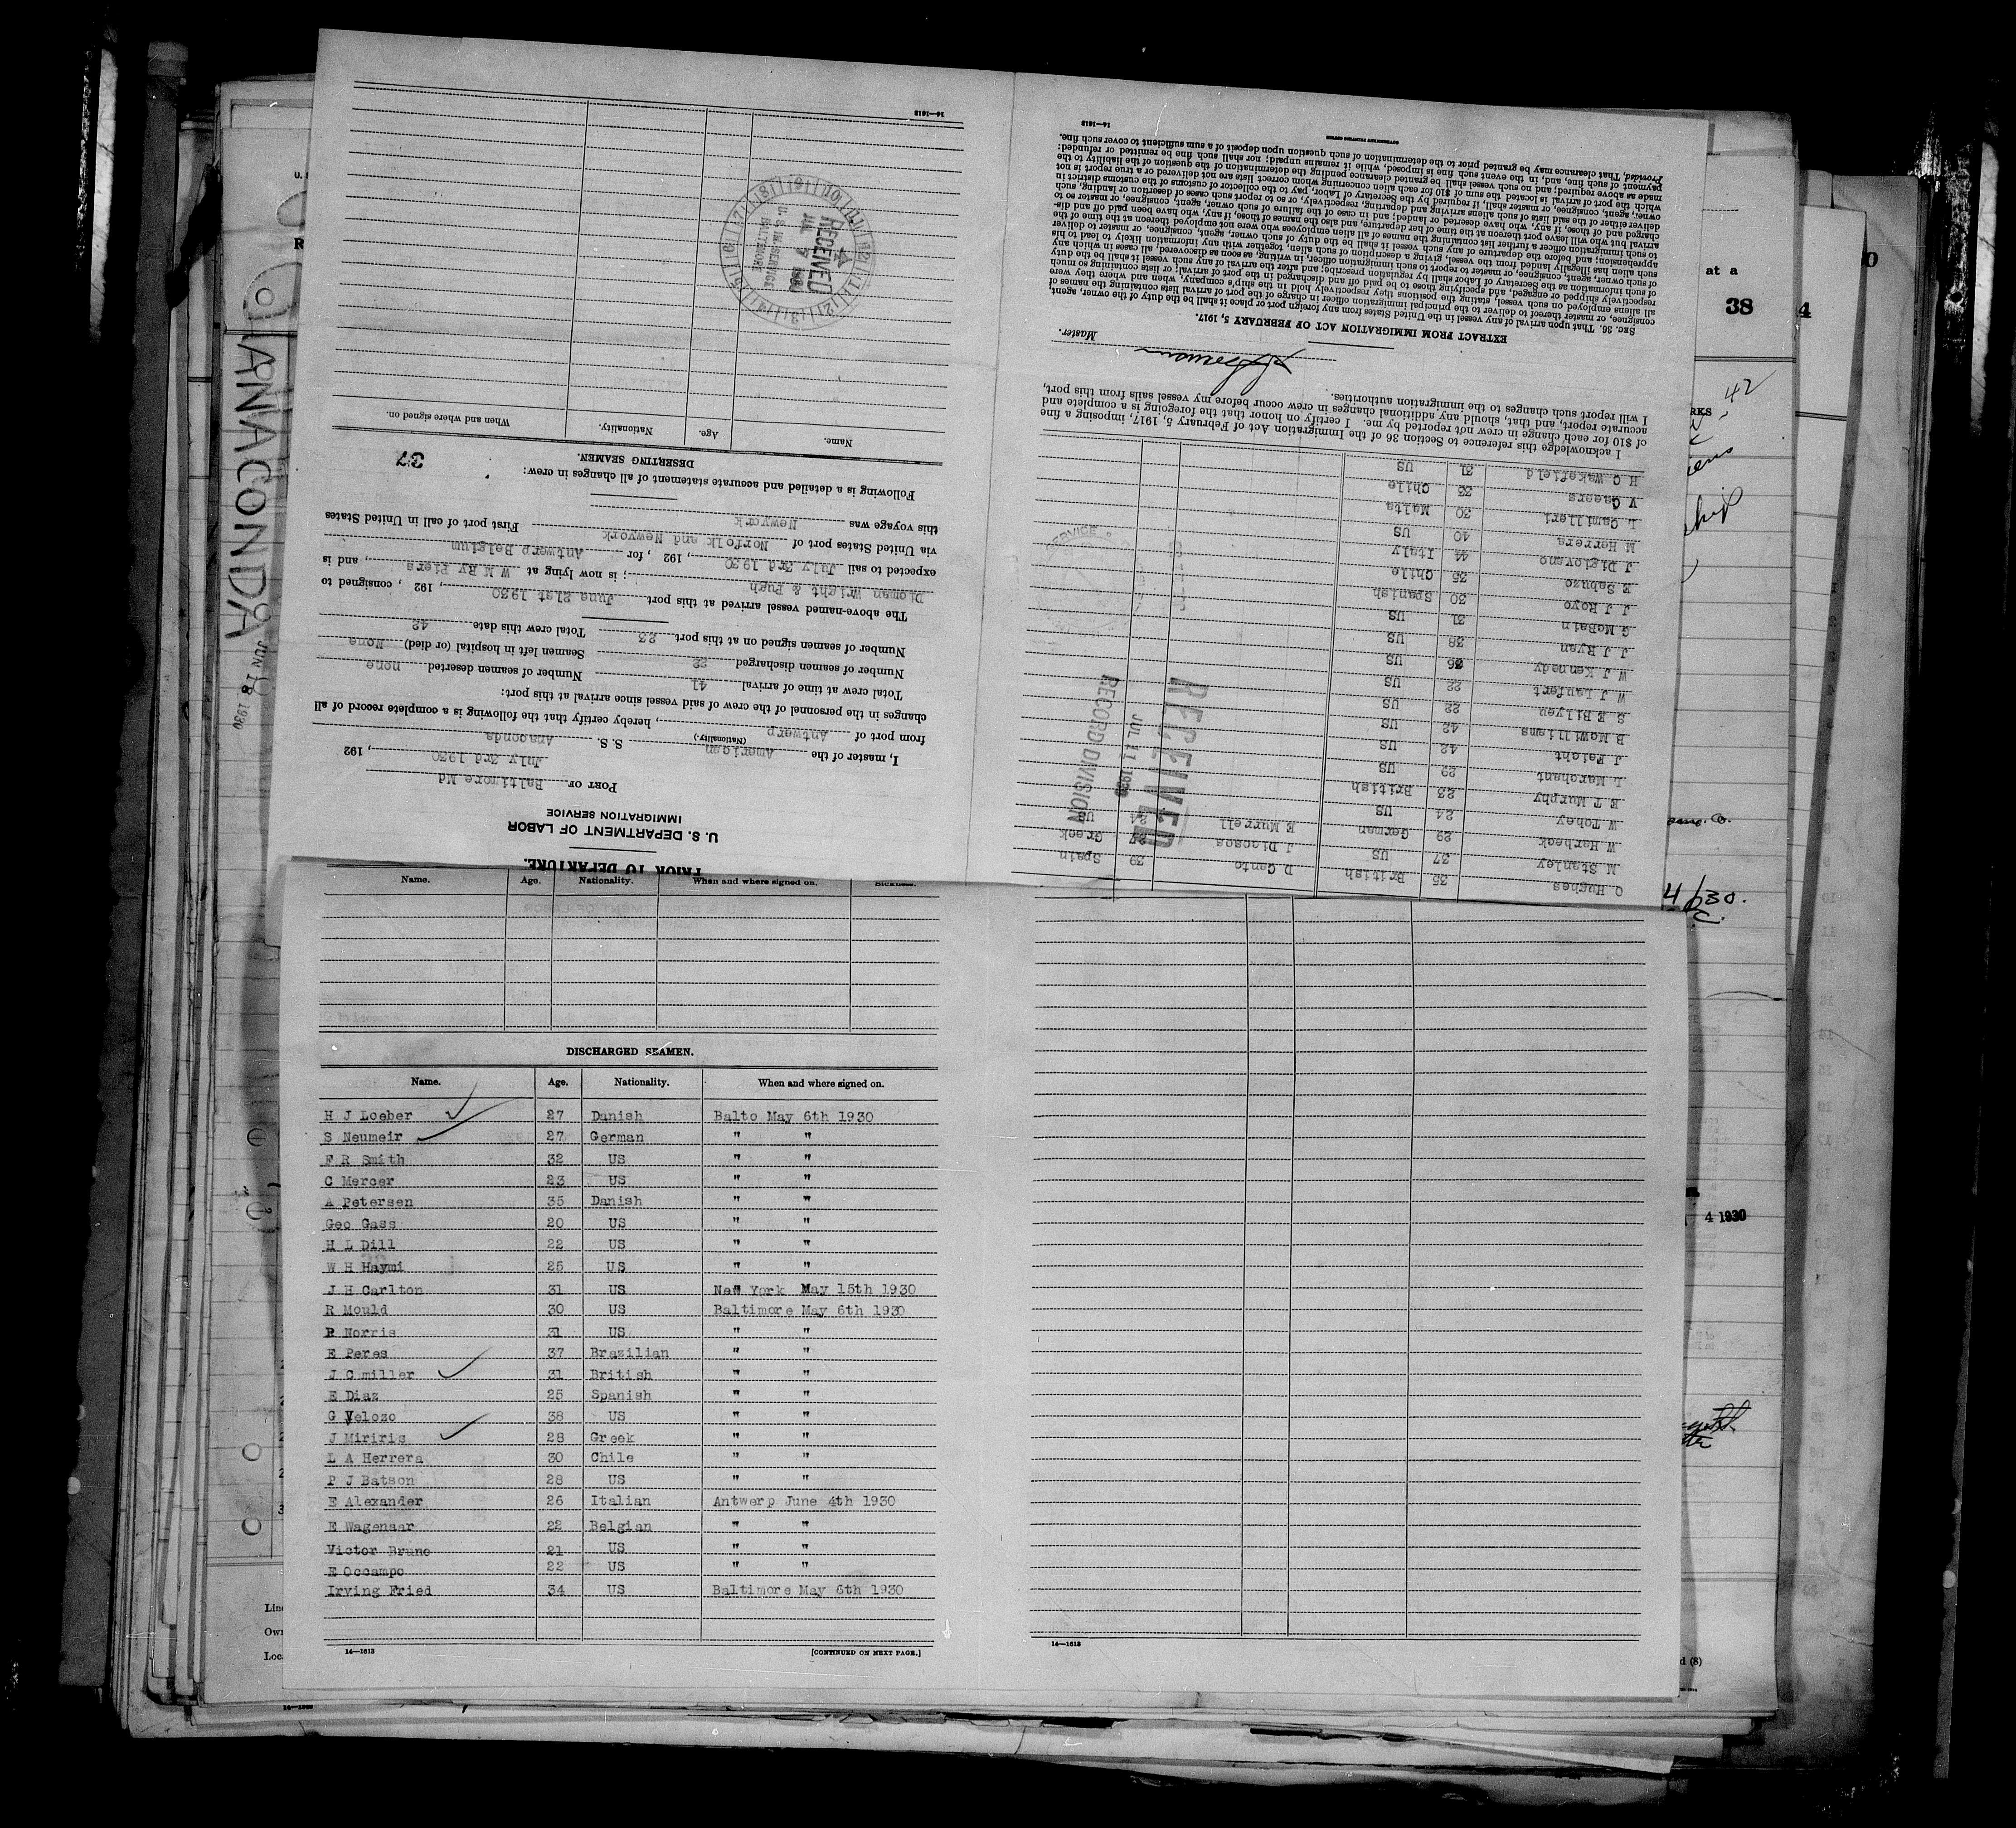 PRIOR TO DEPARTURE.
U. S. DEPARTMENT OF LABOR
IMMIGRATION SERVICE
PORT OF Baltimore Md
July 3rd 1930, 192
I, master of the American S. S. Anaconda
(Nationality.)
from port of Antwerp, hereby certify that the following is a complete record of all
changes in the personnel of the crew of said vessel since arrival at this port:
Total crew at time of arrival 41 Number of seamen deserted none
Number of seamen discharged 22 Seamen left in hospital (or died) None
Number of seamen signed on at this port 23 Total crew this date 42
The above-named vessel arrived at this port June 21st 1930, 192 , consigned to
Dioman Wright & Pugh; is now lying at W M Ry Piers, and is
expected to sail July 3rd 1930, 192 , for Antwerp Belgium
via United States port of Norfolk and Newyork First port of call in United States
this voyage was Newyork
Following is a detailed and accurate statement of all changes in crew:
DESERTING SEAMEN. 37
Name. Age. Nationality. When and where signed on.
RECEIVED
JUL 7 1930
U. S. IM. SERVICE
BALTIMORE
14—1613
O Hughes 35 British D Canto 39 Spain
M Stanley 37 US J Diocsos 27 Greek
W Harbeck 29 German E Murrell 24 US
W Tobey 24 US
E T Murphy 23 British
L Marchant 29 US
J Feight 42 US
B McWilliams 42 US
S E Bilyeu 22 US
W J Lanfert 22 US
W J Kennedy 26 US
J J Ryan 38 US
G McBain 31 US
J J Royo 30 Spanish
E Sabuzo 35 Chile
J Digiovano 44 Italy
M Herrera 40 US
L Camilleri 30 Malta
V Caeers 33 Chile
H C Wakefield 31 US
RECEIVED
JUL 11 1930
RECORD DIVISION
I acknowledge this reference to Section 36 of the Immigration Act of February 5, 1917, imposing a fine
of $10 for each change in crew not reported by me. I certify on honor that the foregoing is a complete and
accurate report, and that, should any additional changes in crew occur before my vessel sails from this port,
I will report such changes to the immigration authorities.
Master.
EXTRACT FROM IMMIGRATION ACT OF FEBRUARY 5, 1917.
SEC. 36. That upon arrival of any vessel in the United States from any foreign port or place it shall be the duty of the owner, agent,
consignee, or master thereof to deliver to the principal immigration officer in charge of the port of arrival lists containing the names of
all aliens employed on such vessel, stating the positions they respectively hold in the ship's company, when and where they were
respectively shipped or engaged, and specifying those to be paid off and discharged in the port of arrival; or lists containing so much
of such information as the Secretary of Labor shall by regulation prescribe; and after the arrival of any such vessel it shall be the duty
of such owner, agent, consignee, or master to report to such immigration officer, in writing, as soon as discovered, all cases in which any
such alien has illegally landed from the vessel, giving a description of such alien, together with any information likely to lead to his
apprehension; and before the departure of any such vessel it shall be the duty of such owner, agent, consignee, or master to deliver
to such immigration officer a further list containing the names of all alien employees who were not employed thereon at the time of the
arrival but who will leave port thereon at the time of her departure, and also the names of those, if any, who have been paid off and dis-
charged and of those, if any, who have deserted or landed; and in case of the failure of such owner, agent, consignee, or master so to
deliver either of the said lists of such aliens arriving and departing, respectively, or so to report such cases of desertion or landing, such
owner, agent, consignee, or master shall, if required by the Secretary of Labor, pay to the collector of customs of the customs district in
which the port of arrival is located the sum of $10 for each alien concerning whom correct lists are not delivered or a true report is not
made as above required; and no such vessel shall be granted clearance pending the determination of the question of the liability to the
payment of such fine, and, in the event such fine is imposed, while it remains unpaid; nor shall such fine be remitted or refunded:
Provided, That clearance may be granted prior to the determination of such question upon deposit of a sum sufficient to cover such fine.
14—1613
Name. Age. Nationality. When and where signed on. Sickness.
DISCHARGED SEAMEN.
Name. Age. Nationality. When and where signed on.
H J Loeber 27 Danish Balto May 6th 1930
S Neumeir 27 German " "
F R Smith 32 US " "
C Mercer 23 US " "
A Petersen 35 Danish " "
Geo Gass 20 US " "
H L Dill 22 US " "
W H Haymi 25 US " "
J H Carlton 31 US New York May 15th 1930
R Mould 30 US Baltimore May 6th 1930
P Norris 31 US " "
E Peres 37 Brazilian " "
J C miller 31 British " "
E Diaz 25 Spanish " "
G Velozo 38 US " "
J Miriris 28 Greek " "
L A Herrera 30 Chile " "
P J Batson 28 US " "
E Alexander 26 Italian Antwerp June 4th 1930
E Wagenaar 22 Belgian " "
Victor Bruno 21 US " "
E Occampo 22 US " "
Irving Fried 34 US Baltimore May 6th 1930
14—1613 [CONTINUED ON NEXT PAGE.]
14—1613
ANACONDA
JUN 18 1930
at a
38
4
42
4 1930